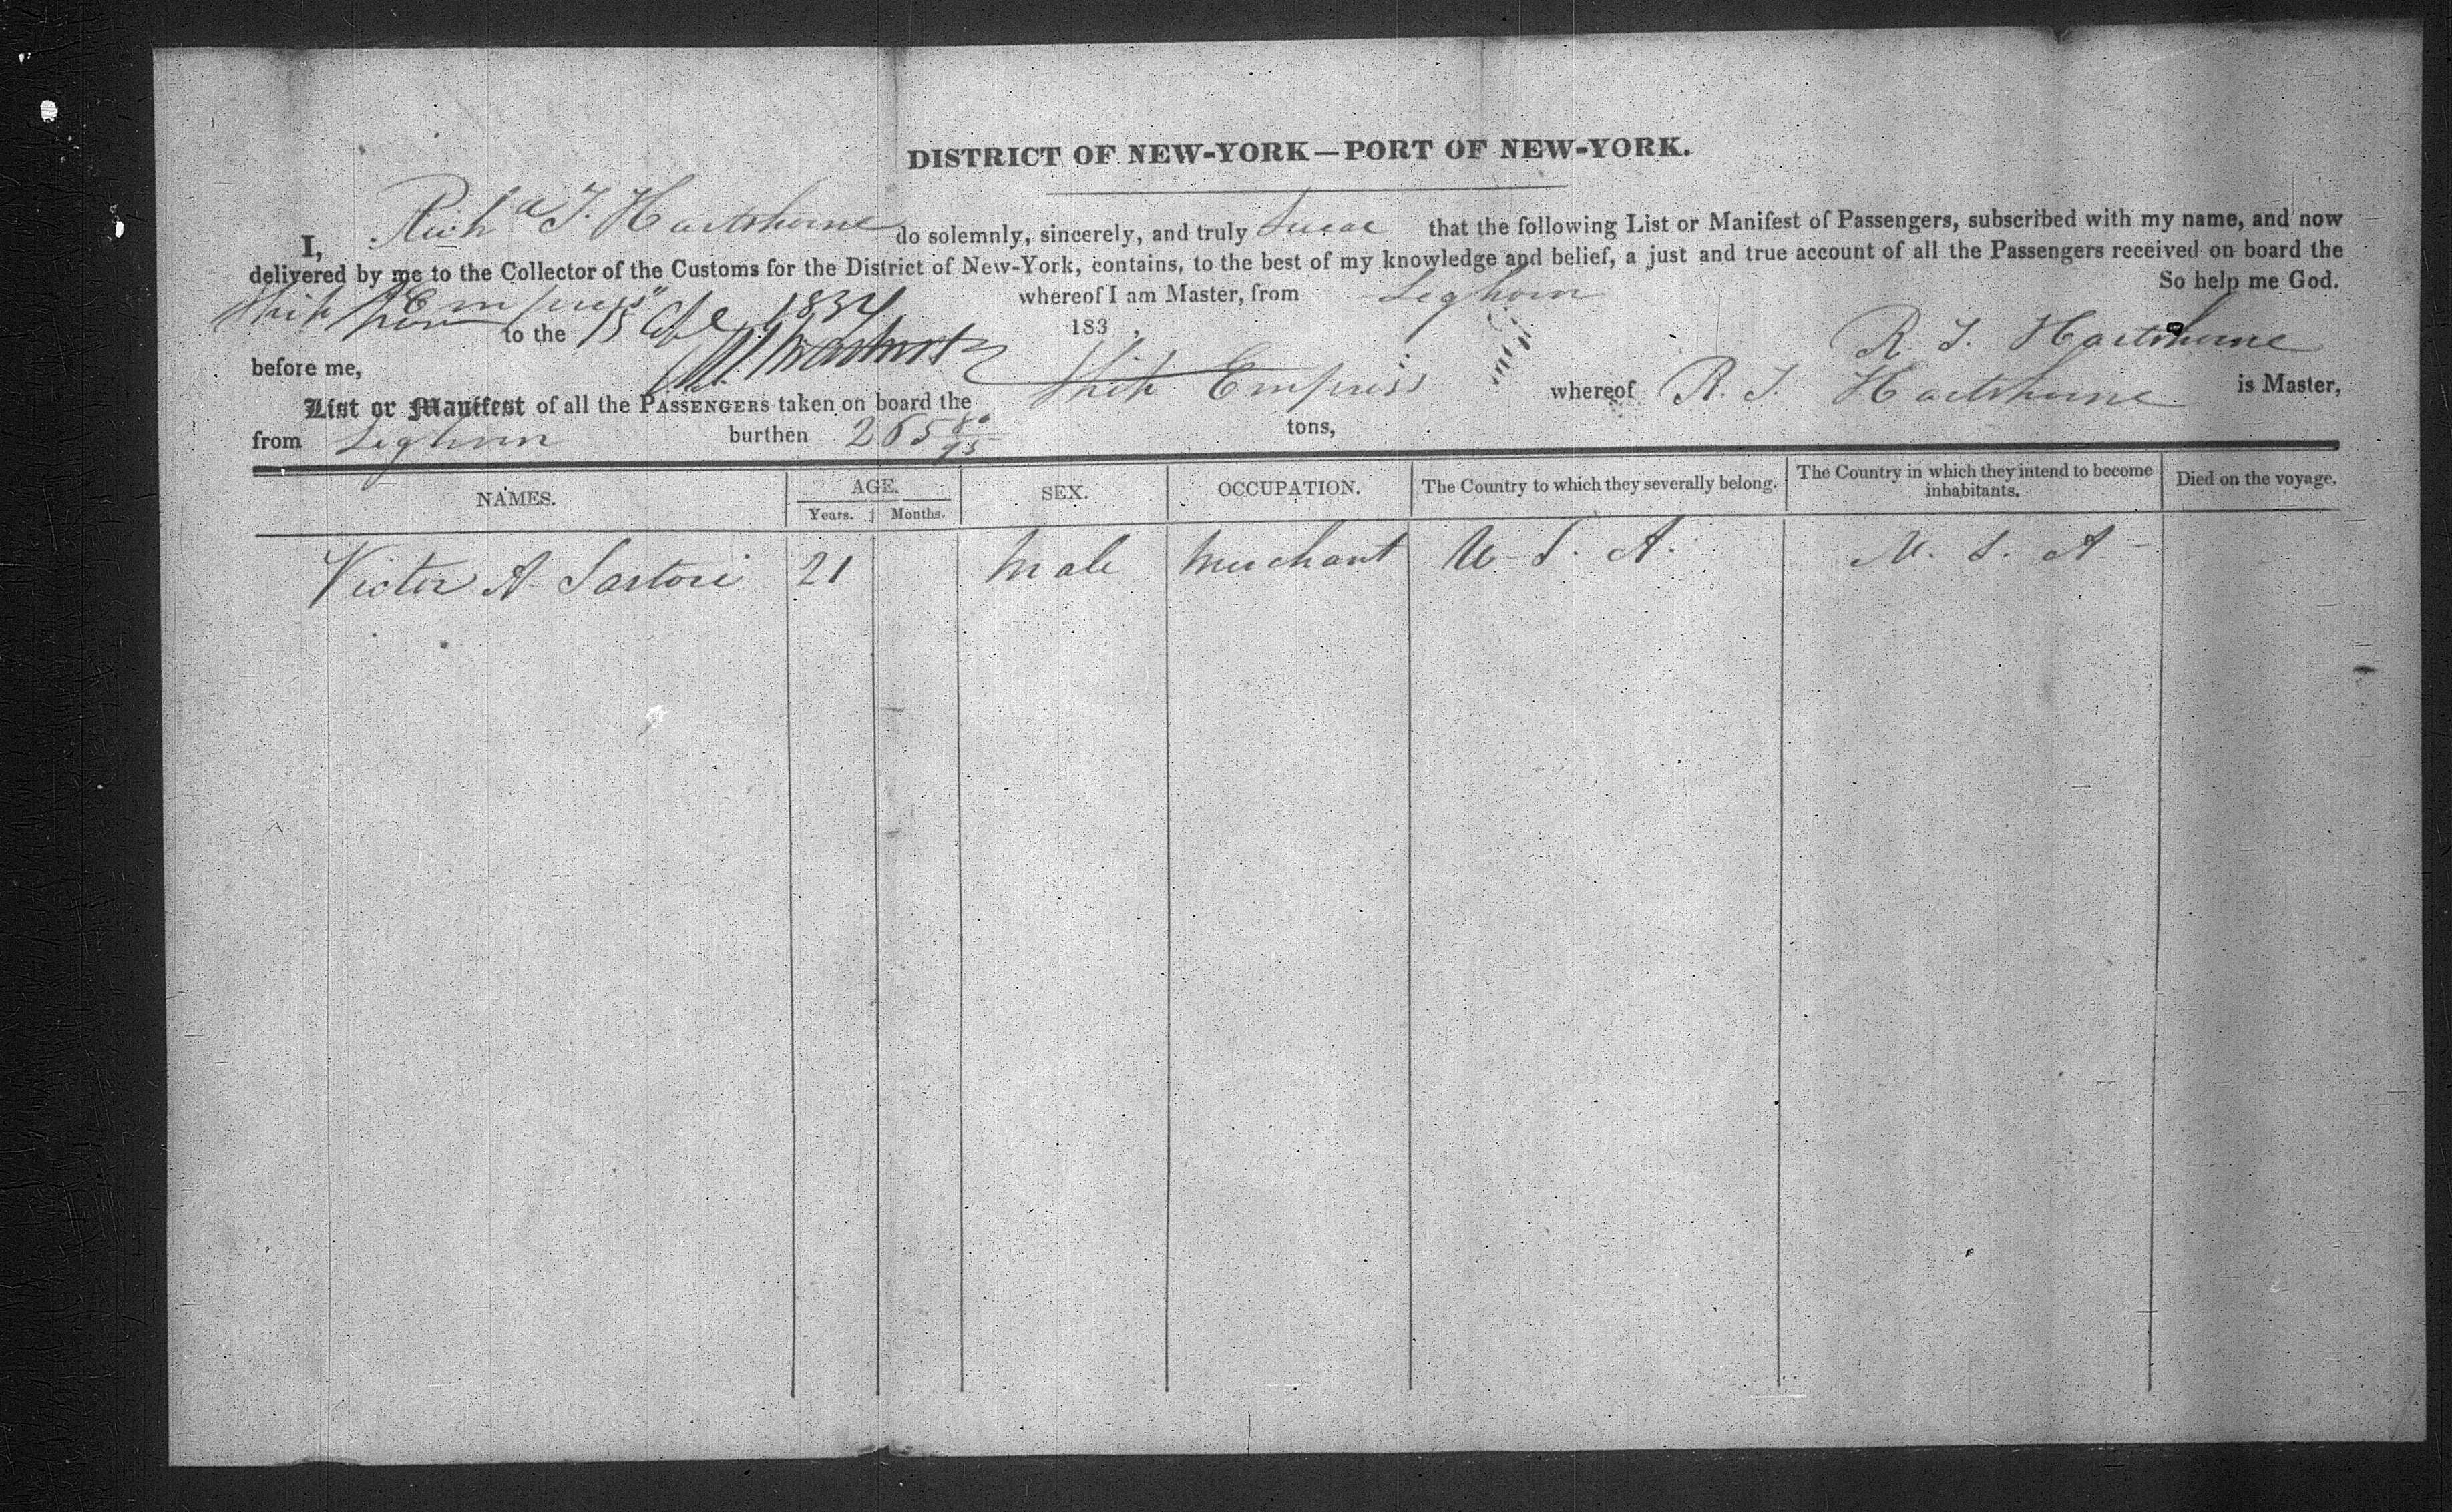 DISTRICT OF NEW-YORK—PORT OF NEW-YORK.
I, Richd T. Hartshorne do solemnly, sincerely, and truly swear that the following List or Manifest of Passengers, subscribed with my name, and now
delivered by me to the Collector of the Customs for the District of New-York, contains, to the best of my knowledge and belief, a just and true account of all the Passengers received on board the
Ship Empress whereof I am Master, from Leghorn So help me God.
Sworn to the 15 1834 183 ,
R. T. Hartshorne
before me,
List or Manifest of all the PASSENGERS taken on board the Ship Empress whereof R. T. Hartshorne is Master,
from Leghorn burthen 265 80/95 tons,
NAMES. AGE. SEX. OCCUPATION. The Country to which they severally belong. The Country in which they intend to become inhabitants. Died on the voyage.
Years. Months.
Victor A. Sartori 21 Male Merchant U. S. A. U. S. A